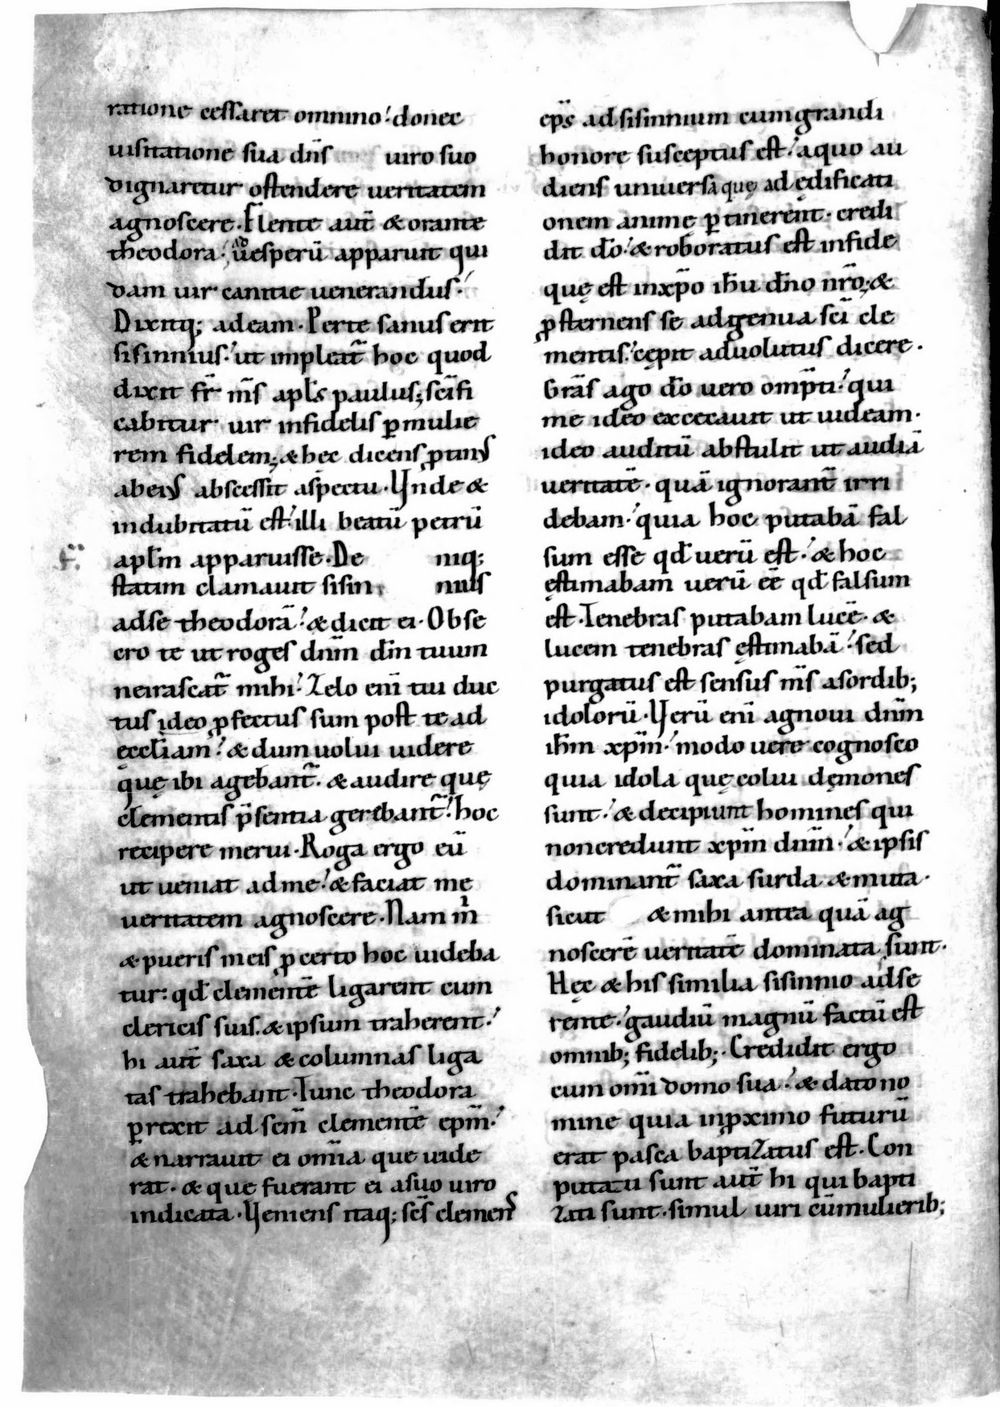 ratione cessaret omnino. donec
uisitatione sua dn̄s uiro suo
dignaretur ostendere ueritatem
agnoscere. Flente aut̄ & orante
theodora. ad uesperū apparuit qui
dam uir canitie uenerandus.
Dixitq; ad eam. Per te sanus erit
sisinnius. ut impleat̄ hoc quod
dixit fr̄ m̄s apl̄s paulus; scīfi
cabitur uir infidelis p̱ mulie
rem fidelem; & hec dicens ꝓtinꝰ
abeiꝰ abscessit aspectu. Vnde &
indubitatū est. illi beatū petrū
apl̄m apparuisse. De niq;
statim clamauit sisin nius
ad se theodorā. & dicit ei. Obse
cro te ut roges dn̄m dm̄ tuum
ne irascat̄ mihi. Zelo eni̅ tui duc
tus ideo ꝓfectus sum post te ad
ęccl̄iam. & dum uolui uidere
quę ibi agebant̄. & audire quę
clementis p̄sentia gerebant̄. hoc
recipere merui. Roga ergo eū
ut ueniat ad me. & faciat me
ueritatem agnoscere. Nam m̄
& pueris meis ꝓ certo hoc uideba
tur: qd̄ clementē ligarent cum
clericis suis. & ipsum traherent.
hi aut̄ saxa & columnas liga
tas trahebant. Tunc theodora
p̱rexit ad scm̄ clementē epm̄.
& narrauit ei om̄ia que uide
rat. & que fuerant ei a suo uiro
indicata. Veniens itaq; scs̄ clemenꝰ
ep̄s ad sisinnium cum grandi
honore susceptus est. a quo au
diens uniuersa quę ad ędificati
onem anime p̱tinerent. credi
dit do̅. & roboratus est in fide
quę est in xp̄o ih̄u dn̄o nr̄o; &
ꝓsternens se ad genua scī cle
mentis. cępit aduolutus dicere.
Grās ago do̅ uero omp̄ti. qui
me ideo excecauit ut uideam.
ideo auditū abstulit ut audiā
ueritatē. quā ignorant̄ irri
debam. quia hoc putabā fal
sum esse qd̄ uerū est. & hoc
ęstimabam uerū ēē qd̄ falsum
est. Tenebras putabam lucē. &
lucem tenebras ęstimabā. sed
purgatus est sensus m̄s a sordib;
idolorū. Verū eni̅ agnoui dn̄m
ih̄m xp̄m. modo uere cognosco
quia idola quę colui dęmones
sunt. & decipiunt homines qui
non credunt xp̄m dn̄m. & ipsis
dominant̄ saxa surda & muta.
sicut & mihi antea quā ag
noscerē ueritatē dominata sunt.
Hęc & his similia sisinnio adse
rente. gaudiū magnū factū est
omnib; fidelib; Credidit ergo
cum om̄i domo sua. & dato no
mine quia in ꝓximo futurū
erat pasca baptizatus est. Con
putati sunt aut̄ hi qui bapti
zati sunt. simul uiri cū mulierib;